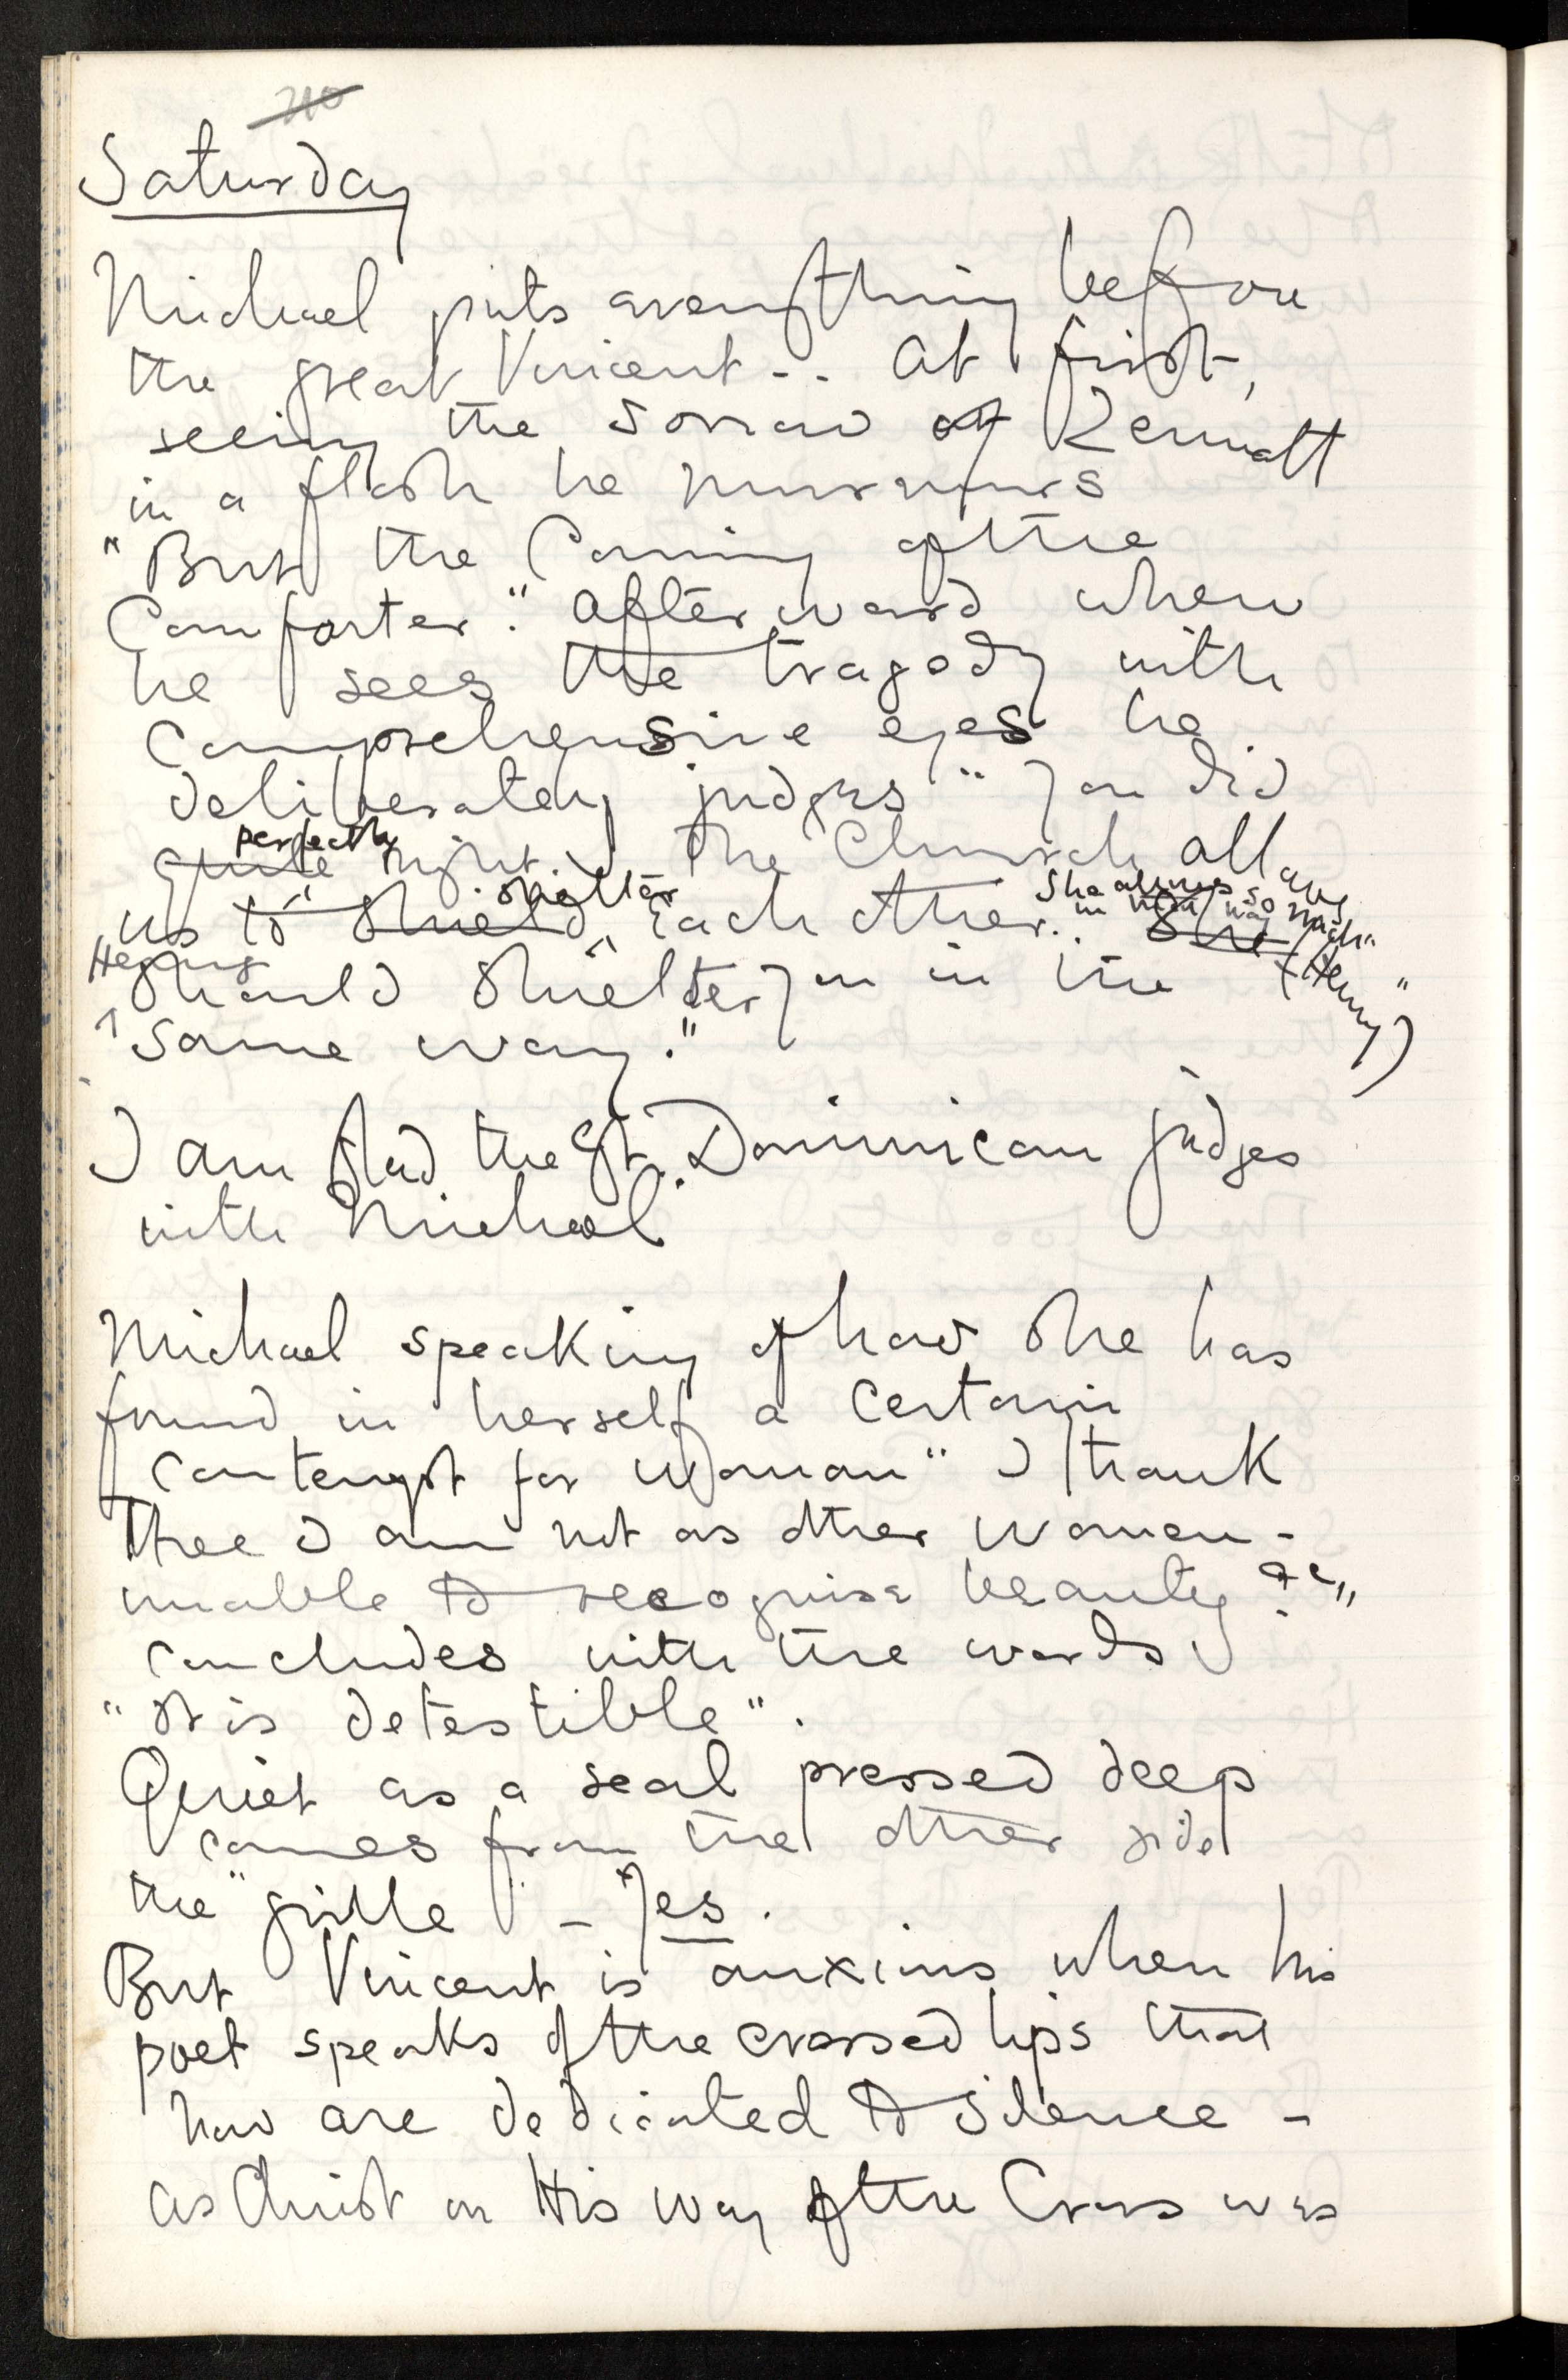 Saturday
Michael puts everything before
the great Vincent.. At first,
seeing the sorrow of Zermatt
in a flash he murmurs
"But the Coming of the
Comforter." Afterward when
he sees the tragedy with
comprehensive eyes he
deliberately judges "You did
perfectly
quite right. The Church allows
us to shield shelter each other. She allows so much
in that way"
She (Henry)
Henry
should shelter you in the
same way."
I am glad the gt. Dominican judges
with Michael
Michael speaking of how she has
found in herself a certain
contempt for Woman "I thank
Thee I am not as other women -
unable to recognise beauty &c"
concludes with the words
"It is detestible".
Quiet as a seal pressed deep
comes from the other side
the grille - Yes.
But Vincent is anxious when his
poet speaks of the crossed lips that
now are dedicated to silence -
as Christ on His way of the Cross was